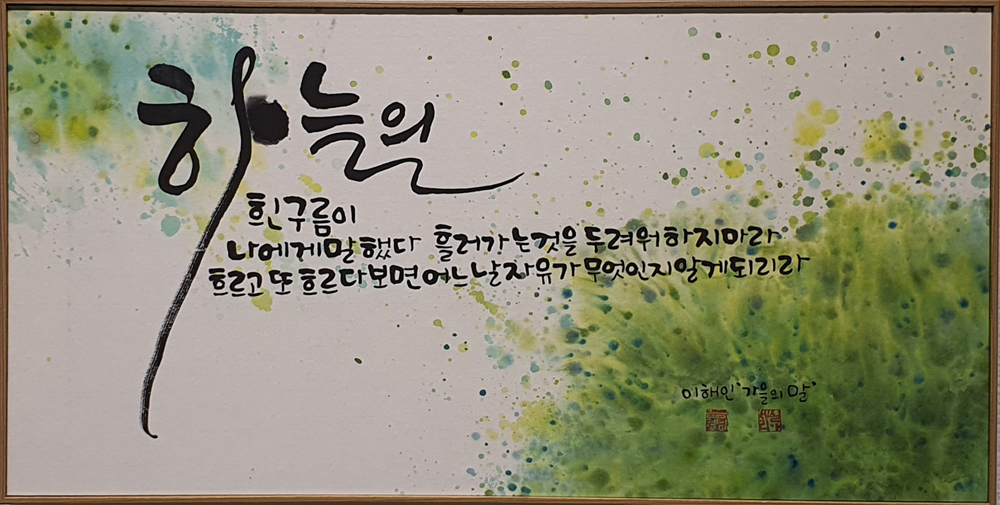 하늘의
흰구름이
나에게 말했다 흘러가는것을 두려워하지마라
흐르고 또 흐르다보면 어느날 자유가 무엇인지 알게되리라
이해인 "가을의 말"